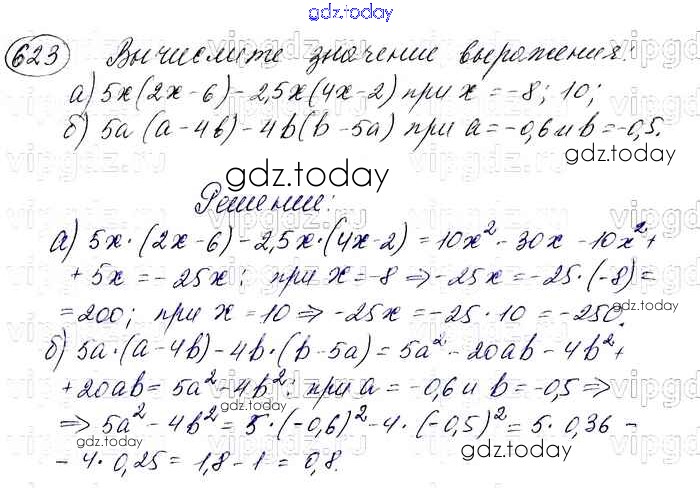 gdz.today
623 Вычислите значение выражения:
а) 5x(2x-6)-2,5x(4x-2) при x=-8; 10;
б) 5a(a-4b)-4b(b-5a) при a=-0,6 и b=-0,5.
gdz.today
Решение:
а) 5x·(2x-6)-2,5x·(4x-2)=10x²-30x-10x²+
+5x=-25x; при x=-8 ⇒ -25x=-25·(-8)=
=200; при x=10 ⇒ -25x=-25·10=-250.
gdz.today
б) 5a·(a-4b)-4b·(b-5a)=5a²-20ab-4b²+
+20ab=5a²-4b²; при a=-0,6 и b=-0,5 ⇒
⇒ 5a²-4b²=5·(-0,6)²-4·(-0,5)²=5·0,36-
gdz.today
-4·0,25=1,8-1=0,8.
gdz.today